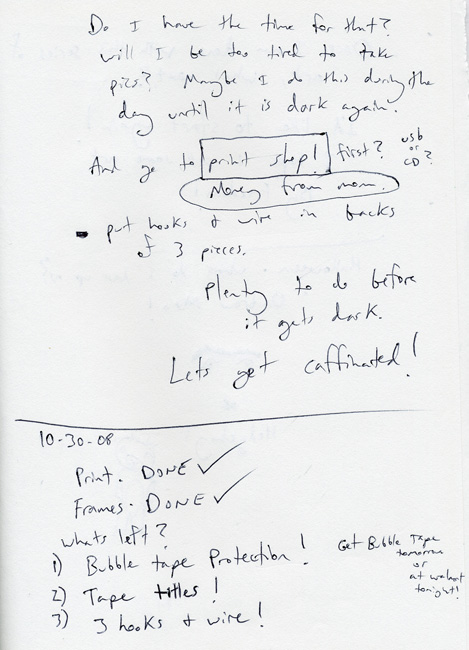 Do I have the time for that?
will I be too tired to take
pics? Maybe I do this during the
day until it is dark again.
And go to print shop! first? usb or CD?
Money from mom.
- put hooks & wire in backs
of 3 pieces.
Plenty to do before
it gets dark.
Lets get caffinated!
10-30-08
Print. DONE ✓
Frames. DONE ✓
whats left?
1) Bubble tape Protection!
2) Tape titles!
3) 3 hooks & wire!
Get Bubble Tape
tomorrow
or
at walmart
tonight!